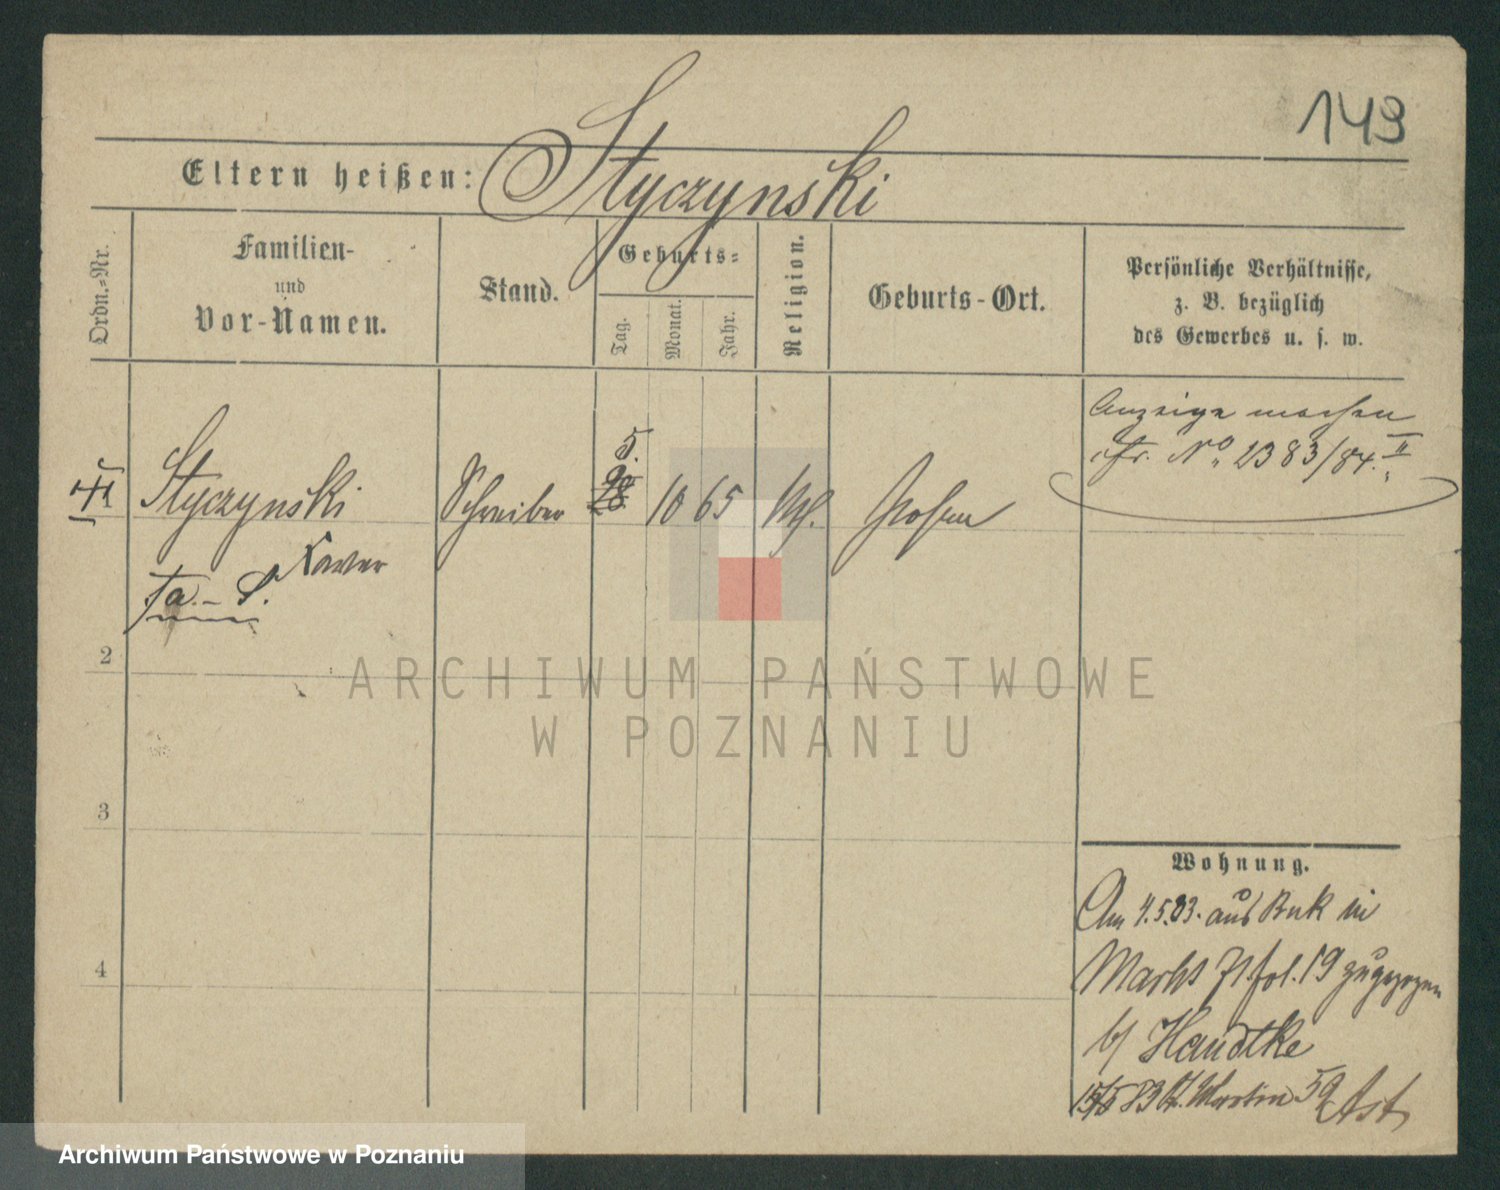 149
Eltern heißen: Styczynski
Ordn.-Nr.
Familien-
und
Vor-Namen.
Stand.
Geburts-
Tag.
Monat.
Jahr.
Religion.
Geburts-Ort.
Persönliche Verhältnisse,
z. B. bezüglich
des Gewerbes u. s. w.
Styczynski
Xaver
Schreiber
5.
28
10
65
Posen
Anzeige machen
cfr. No 2383/84. II
2
3
4
Wohnung.
Am 4.5.83. aus Buk in
Markt 71. fol. 19 zugezogen
b/ Handtke
15/5 83 St. Martin 59
ARCHIWUM PAŃSTWOWE
W POZNANIU
Archiwum Państwowe w Poznaniu